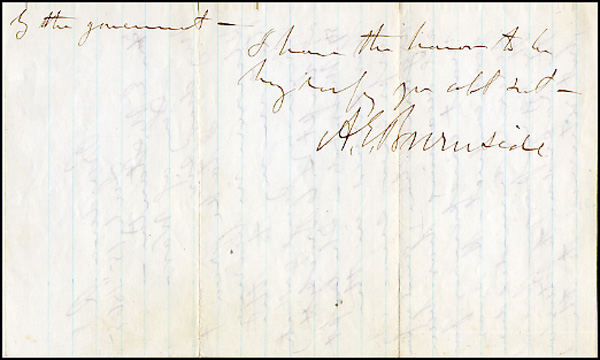 by the government –
I have the honor to be
Very respy your obt svt –
A. E. Burnside